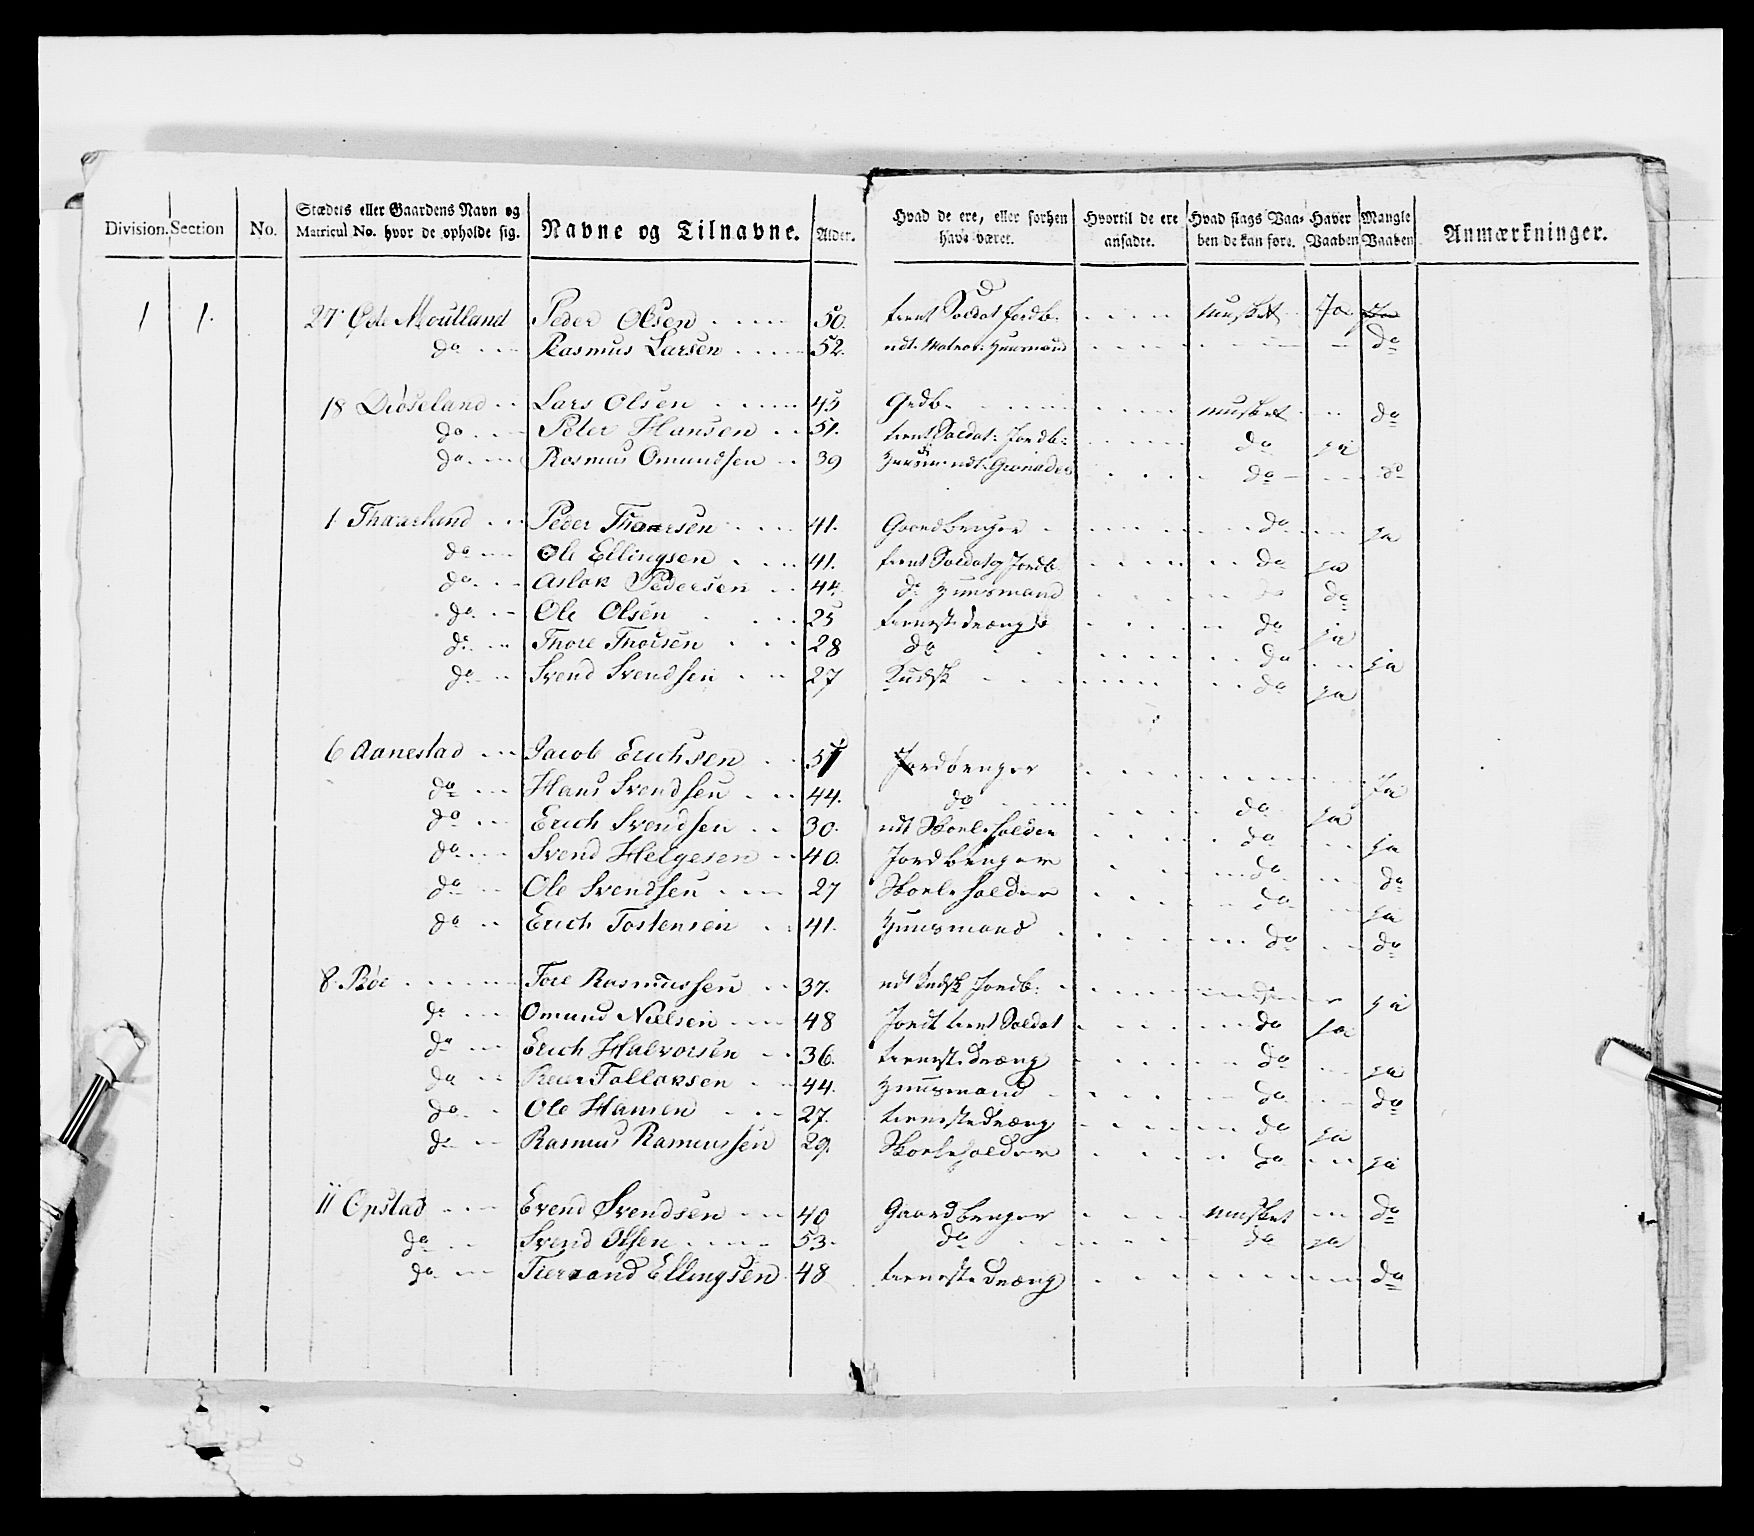 Division. Section No. Stædets eller Gaardens Navn og Matricul No. hvor de opholde sig. Navne og Tilnavne. Alder. Hvad de ere, eller forhen have været. Hvortil de ere ansadte. Hvad slags Vaaben de kan føre. Haver Vaaben Mangle Vaaben Anmærkninger.
1 1. 27 Øste Moutland Peder Olsen 50. tient Soldat Jordb. musket Ja
do Rasmus Larsen 52. udt. Matros: Huusmand do
18 Diøseland Lars Olsen 45 Grdb. musket do
do Peter Hansen 51. tient Soldat: Jordb: do ja
do Rasmus Omundsen 39 Huusm: udt. Grenader do do
1 Thaarland Peder Thaarsen 41. Gaardbruger do ja
do Ole Ellingsen 41. tient Soldat og Jordb. do ja
do Aslak Pedersen 44. do Huusmand do do
do Ole Olsen 25 tieneste dræng do ja
do Thore Thorsen 28 do do ja
do Svend Svendsen 27 Kudsk do ja
6 Aanestad Jacob Erichsen 51 Jordbruger Ja
do Hans Svendsen 44. do do ja
do Erich Svendsen 30. udt Skoleholder do ja
do Svend Helgesen 40. Jordbruger do do
do Ole Svendsen 27 Skoleholder do ja
do Erich Tostensen 41. Huusmand do do
8 Bøe Tore Rasmussen 37. udt Kudsk Jordb: do ja
do Omund Nielsen 48 Jordb tient Soldat do ja
do Erich Halvorsen 36. tieneste dræng do ja
do Peder Tollaksen 44. Huusmand do do
do Ole Hansen 27. tieneste dræng do ja
do Rasmus Rasmussen 29. Skoleholder do ja
11 Opstad Evend Svendsen 40 Gaardbruger musket do
do Svend Olsen 53. do do ja
do Tieraand Ellingsen 48 tieneste dræng do